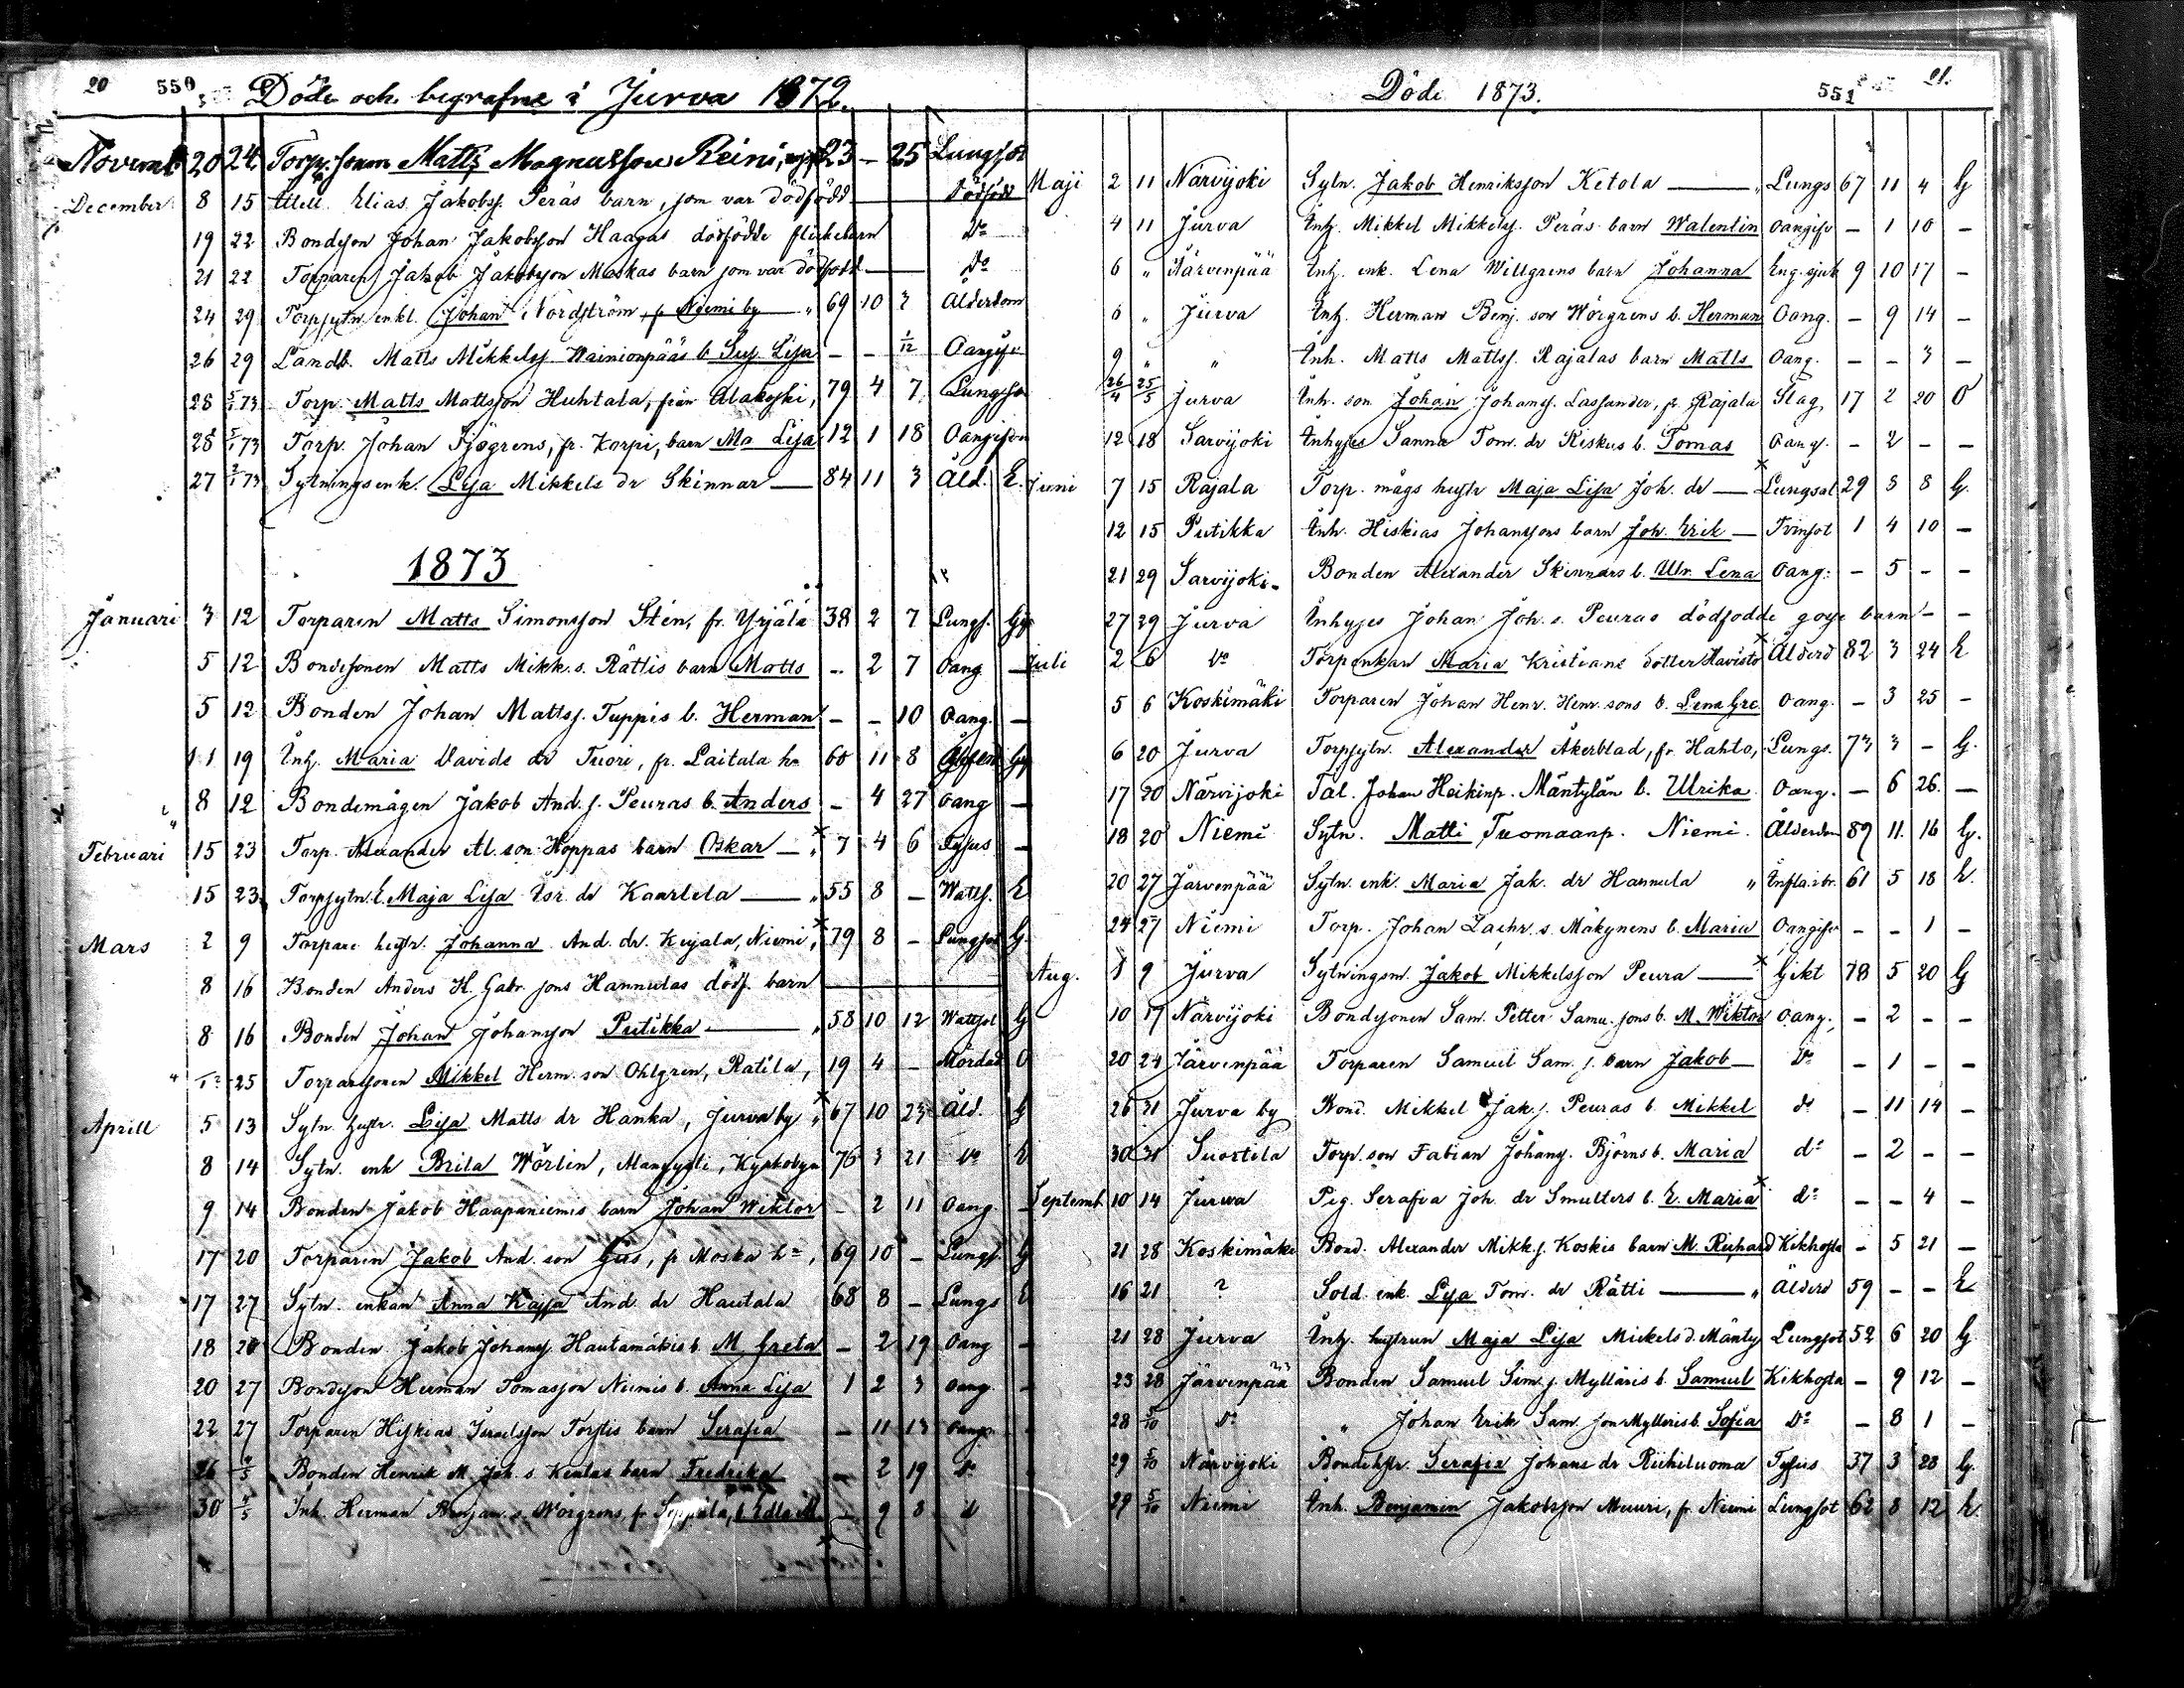 20 550 Döde och begrafne i Jurva 1872.
Novemb. 20 24 Torp. sonen Matts Magnusson Reini, 23 – 25 Lungsot
December 8 15 Elias Jakobss. Peräs barn, som var dödfödd Dödfödd
19 22 Bondeson Johan Jakobsson Haagas dödfödde flickebarn Do
21 22 Torparen Jakob Jakobsson Moskas barn som var dödfödd Do
24 29 Torpsytn. enkl. Johan Nordström, fr Niemi by " 69 10 3 Ålderdom
26 29 Landb. Matts Mikkelss. Wainionpääs b. Sus. Lisa – – 1/12 Oangifv
28 5/1 73 Torp. Matts Mattsson Huhtala, från Alakyski, 79 4 7 Lungso
28 5/1 73 Torp. Johan Sjögrens, fr. Korpi, barn Ma Lisa 12 1 18 Oangifven
27 2/1 73 Sytningsenk. Lisa Mikkels dr Skinnar — 84 11 3 Åld. E.
1873
Januari 3 12 Torparen Matts Simonsson Sten, fr. Yrjälä 38 2 7 Lungs. G
5 12 Bondesonen Matts Mikk. s. Rättis barn Matts – 2 7 Oang –
5 12 Bonden Johan Mattss. Tuppis b. Herman – – 10 Oang. –
11 19 Inh. Maria Davids dr Tuori, fr. Laitala hn 60 11 8
8 12 Bondemågen Jakob And. s. Peuras b. Anders – 4 27 Oang –
Februari 15 23 Torp. Alexander Al. son Hoppas barn Oskar — " 7 4 6 Tyfus –
15 23 Torpsytn. E. Maja Lisa Esr. dr Kaarlela — " 55 8 – Watts. E
Mars 2 9 Torpare hustr. Johanna And. dr. Kujala, Niemi, 79 8 – Lungsot G.
8 16 Bonden Anders H. Gabr. sons Hannulas dödf. barn
8 16 Bonden Johan Johansson Putikka — " 58 10 12 Wattsot G
" 25 Torparesonen Mikkel Herm. son Ohlgren, Ratila, 19 4 – Mördad O
Aprill 5 13 Sytn. hustr. Lisa Matts dr Hanka, Jurva by " 67 10 23 Åld. G
8 14 Sytn. enk Brita Wörlin, Kyrkobyn 76 3 21 Do E
9 14 Bonden Jakob Haapaniemis barn Johan Wiktor – 2 11 Oang. –
17 20 Torparen Jakob And. son Gus, fr Moska hn, 69 10 – Lungs. G
17 27 Sytn. enkan Anna Kajsa And. dr Hautala 68 8 – Lungs E
18 20 Bonden Jakob Johanss. Hautamäkis b. M. Greta – 2 19 Oang –
20 27 Bondeson Herman Tomasson Niemis b. Anna Lisa 1 2 3 Oang. –
22 27 Torparen Hiskias Israelsson Torstis barn Serafia – 11 13 Oang
26 4/5 Bonden Henrik M. Joh. s. Keulas barn Fredrika – 2 19 Do
30 4/5 Inh. Herman Benjam. s. Wörgrens, fr Seppälä, b. Edla M. – 9 8 d
Döde 1873. 551 21.
Maji 2 11 Närvijoki Sytn. Jakob Henriksson Ketola — " Lungs 67 11 4 G
4 11 Jurva Inh. Mikkel Mikkelss. Peräs barn Walentin Oangifv – 1 10 –
6 " Järvenpää Inh. enk. Lena Willgrens barn Johanna Eng. sjuk 9 10 17 –
6 " Jurva Inh. Herman Benj. son Wörgrens b. Herman Oang. – 9 14 –
9 " " Inh. Matts Mattss. Rajalas barn Matts Oang. – – 3 –
26/4 25/5 Jurva Inh. son Johan Johanss. Lassander, fr. Rajala Slag 17 2 20 O
12 18 Sarvijoki Inhyses Sanna Tom. dr Kiskus b. Tomas Oang. – 2 – –
Juni 7 15 Rajala Torp. mågs hustr Maja Lisa Joh. dr — Lungsot 29 8 8 G.
12 15 Putikka Inh. Hiskias Johanssons barn Joh. Erik — Tvinsot 1 4 10 –
21 29 Sarvijoki Bonden Alexander Skinnars b. Ulr. Lena Oang: – 5 – –
27 29 Jurva Inhyses Johan Joh. s. Peuras dödfödde gosse barn – –
Juli 2 6 Do Torpenkan Maria Kristians dotter Havisto Ålderd 82 3 24 E
5 6 Koskimäki Torparen Johan Henr. Henr. sons b. Lena Gre Oang. – 3 25 –
6 20 Jurva Torpsytn. Alexander Åkerblad, fr. Hahto, Lungs. 73 3 – G.
17 20 Närvijoki Tal. Johan Heikinp. Mäntylän b. Ulrika Oang. – 6 26. –
18 20 Niemi Sytn. Matti Tuomaanp. Niemi. Ålderdom 89 11 16 G.
20 27 Järvenpää Sytn. enk. Maria Jak. dr Hannula " Infla. i br. 61 5 18 E.
24 27 Niemi Torp. Johan Zachr. s. Mäkynens b. Maria Oangifv – – 1 –
Aug. 8 9 Jurva Sytningsm. Jakob Mikkelsson Peura — Gikt 78 5 20 G
10 17 Närvijoki Bondesonen Sam. Petter Samu. sons b. M. Wiktor Oang. – 2 – –
20 24 Järvenpää Torparen Samuel Sam. s. barn Jakob — Do – 1 – –
26 31 Jurva by Bond. Mikkel Jak. s. Peuras b. Mikkel do – 11 14 –
30 31 Suostila Torp. son Fabian Johans. Björns b. Maria do – 2 – –
Septemb. 10 14 Jurva Pig. Serafia Joh. dr Smulters b. E. Maria do – – 4 –
21 28 Koskimäki Bond. Alexander Mikk. s. Koskis barn M. Richard Kikhosta – 5 21 –
16 21 ? Sold. enk. Lisa Tom. dr Rätti — " Ålderd 59 – – E
21 28 Jurva Inh. hustrun Maja Lisa Mickels d. Mänty Lungsot 52 6 20 G.
23 28 Järvenpää Bonden Samuel Sim. s. Mylläris b. Samuel Kikhosta – 9 12 –
28 5/10 Do " Johan Erik Sam. son Mylläris b. Sofia Do – 8 1 –
29 5/10 Närvijoki Bondehstr. Serafia Johans dr Riihiluoma Tyfus 37 3 28 G.
29 5/10 Niemi Inh. Benjamin Jakobsson Muuri, fr Niemi Lungsot 62 8 12 E.